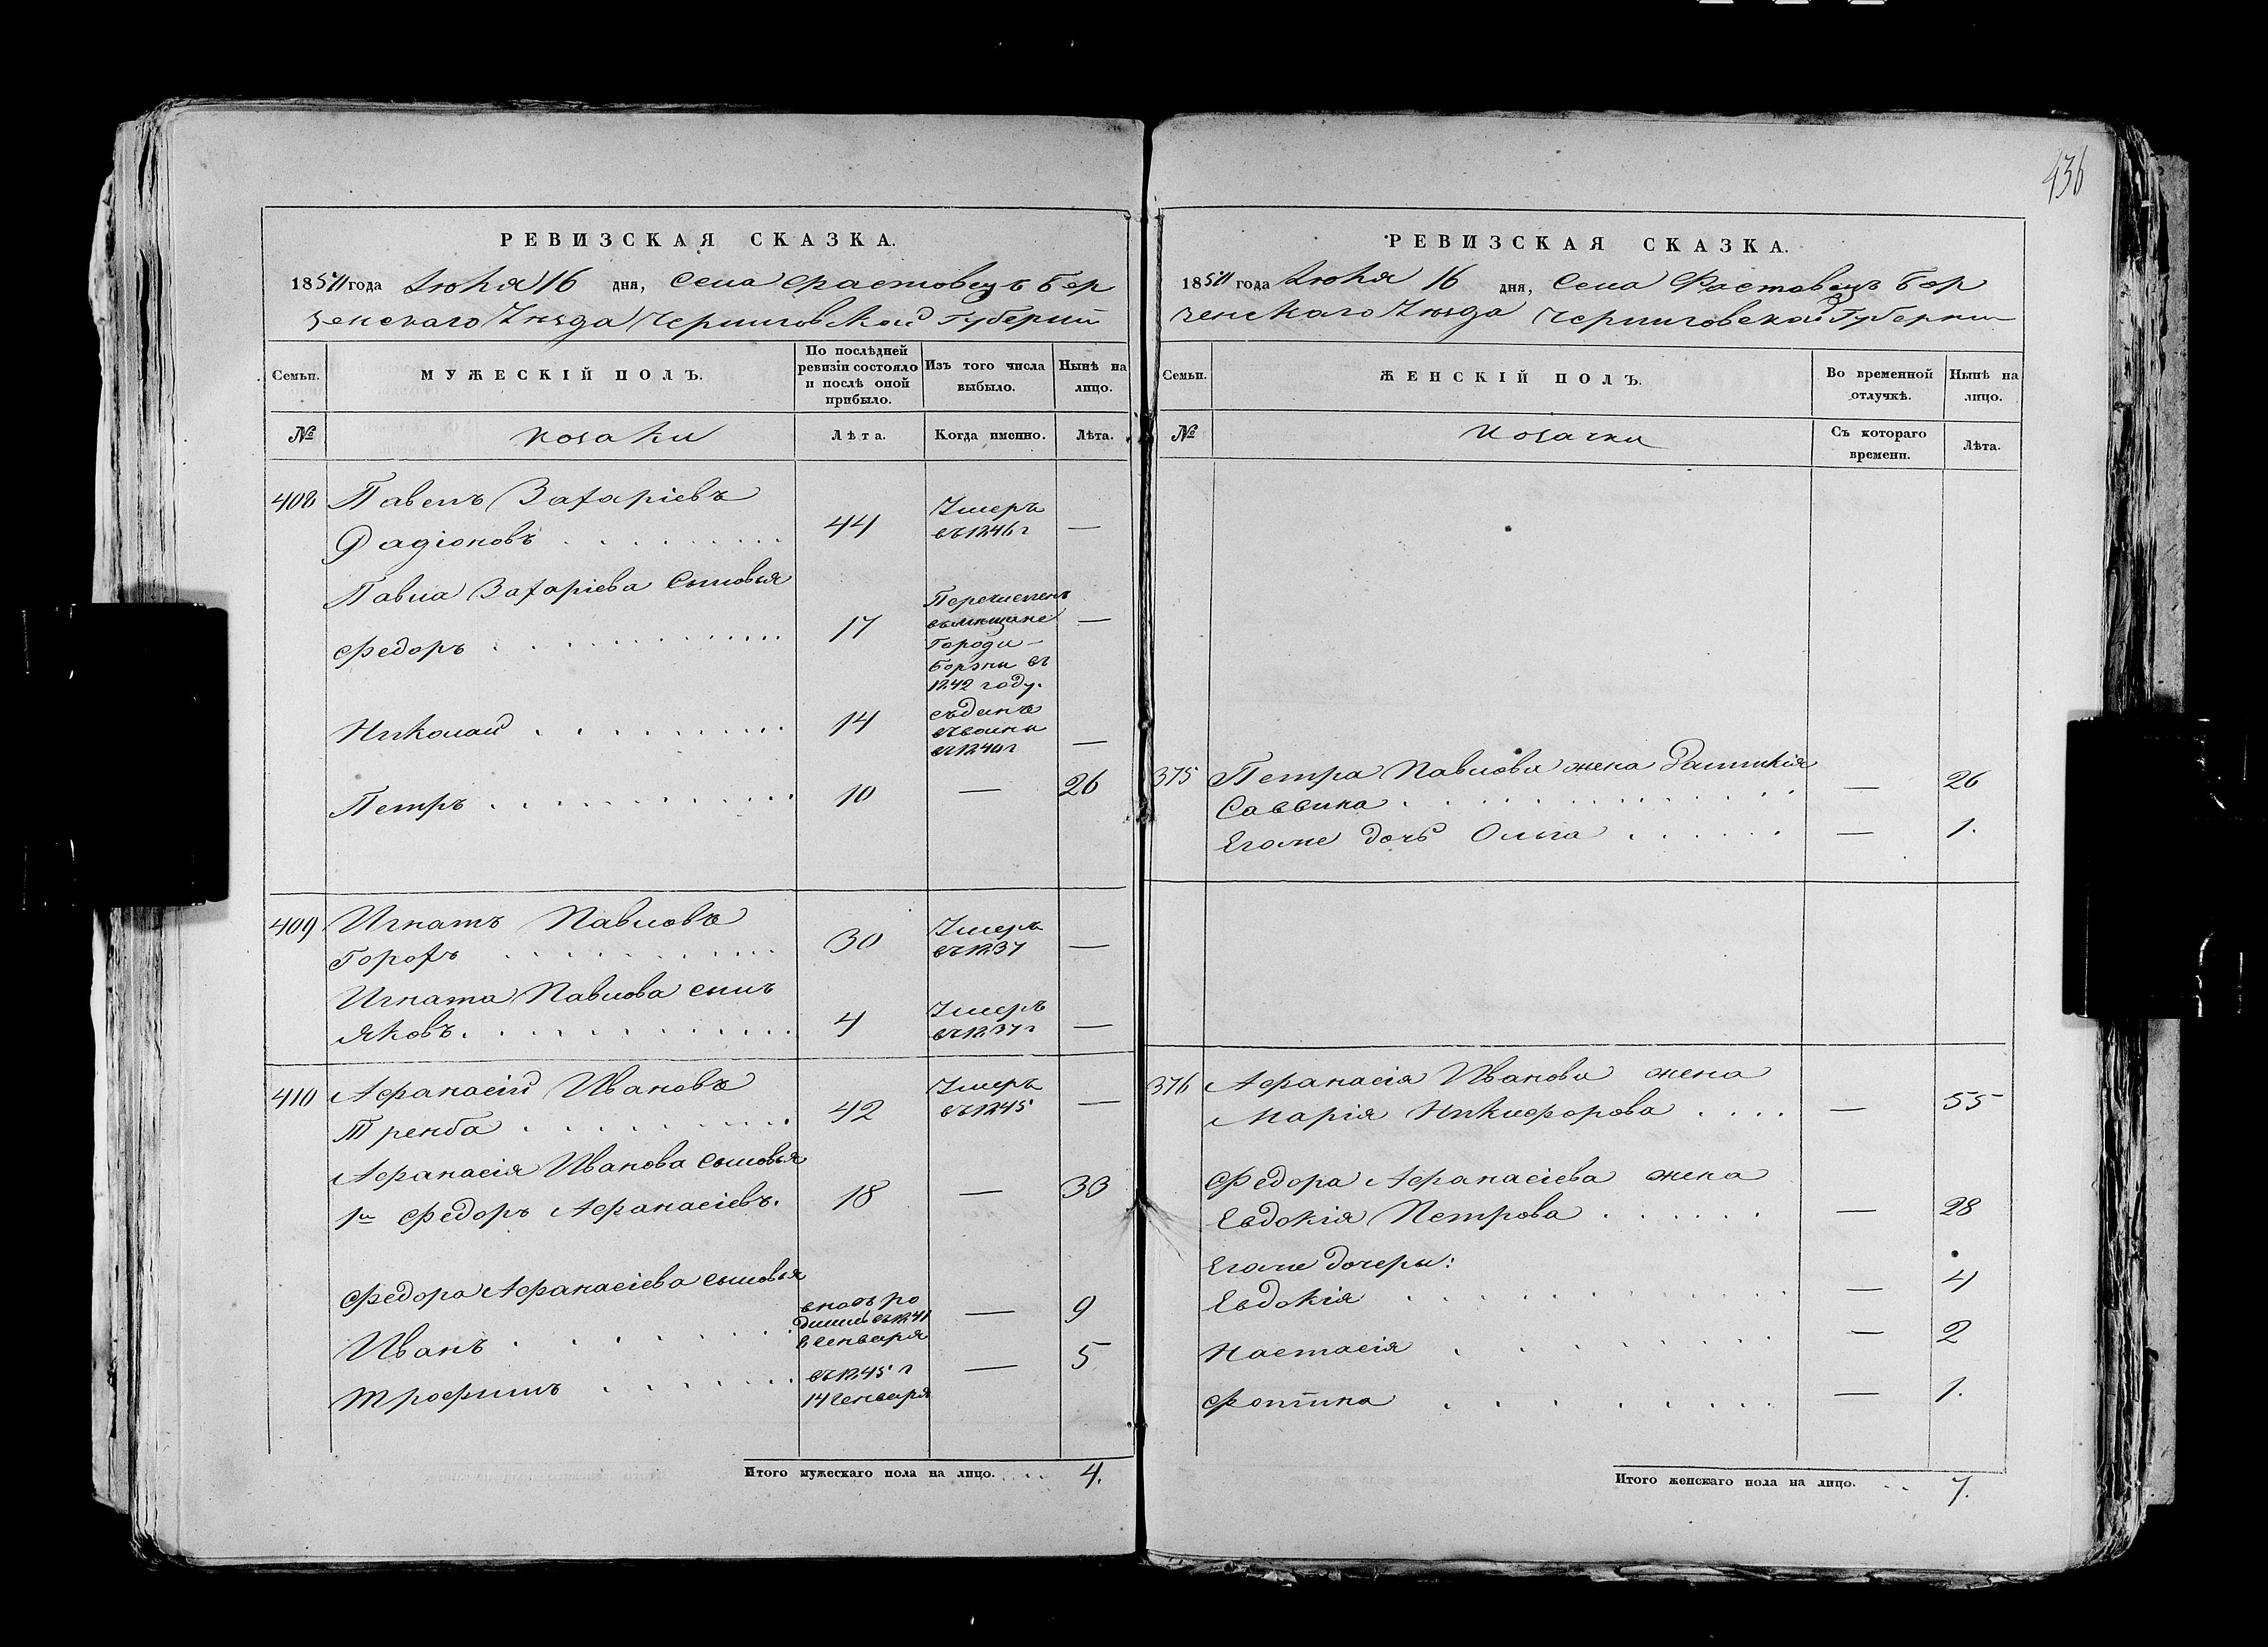 436
РЕВИЗСКАЯ СКАЗКА.
1850 года Іюня 16 дня, Села Фастовецъ Бор
зенскаго Уезда Черниговской Губерніи
Семьи. МУЖЕСКІЙ ПОЛЪ. По послѣдней ревизіи состояло и послѣ оной прибыло. Изъ того числа выбыло. Нынѣ на лицо.
№ Козаки Лѣта. Когда именно. Лѣта.
408 Павелъ Захаріевъ
Радіоновъ 44 Умеръ въ 1846 г —
Павла Захаріева Сыновья
Федоръ 17 Перечисленъ въ мещане Города Борзны въ 1842 году. —
Николай 14 Въ 1840 г —
Петръ 10 — 26
409 Игнатъ Павловъ
Горохъ 30 Умеръ въ 1837 —
Игната Павлова сынъ
Яковъ 4 Умеръ въ 1837 г —
410 Афанасій Ивановъ
Тренба 42 Умеръ въ 1845 —
Афанасія Иванова Сыновья
1й Федоръ Афанасіевъ. 18 — 33
Федора Афанасіева сыновья
Иванъ вновь ро дился въ 1841 Генваря — 9
Трофимъ въ 1845 г 14 Генваря — 5
Итого мужескаго пола на лицо. 4.
РЕВИЗСКАЯ СКАЗКА.
1850 года Іюня 16 дня, Села Фастовецъ Бор
зенскаго Уезда Черниговской Губерніи
Семьи. ЖЕНСКІЙ ПОЛЪ. Во временной отлучкѣ. Нынѣ на лицо.
№ Козачки Съ котораго времени. Лѣта.
375 Петра Павлова жена
Саввина — 26
Егоже дочь Ольга — 1.
376 Афанасія Иванова жена
Марія Никифорова — 55
Федора Афанасіева жена
Евдокія Петрова — 28
Егоже дочери:
Евдокія — 4
Настасія — 2
Фотина — 1.
Итого женскаго пола на лицо. 7.